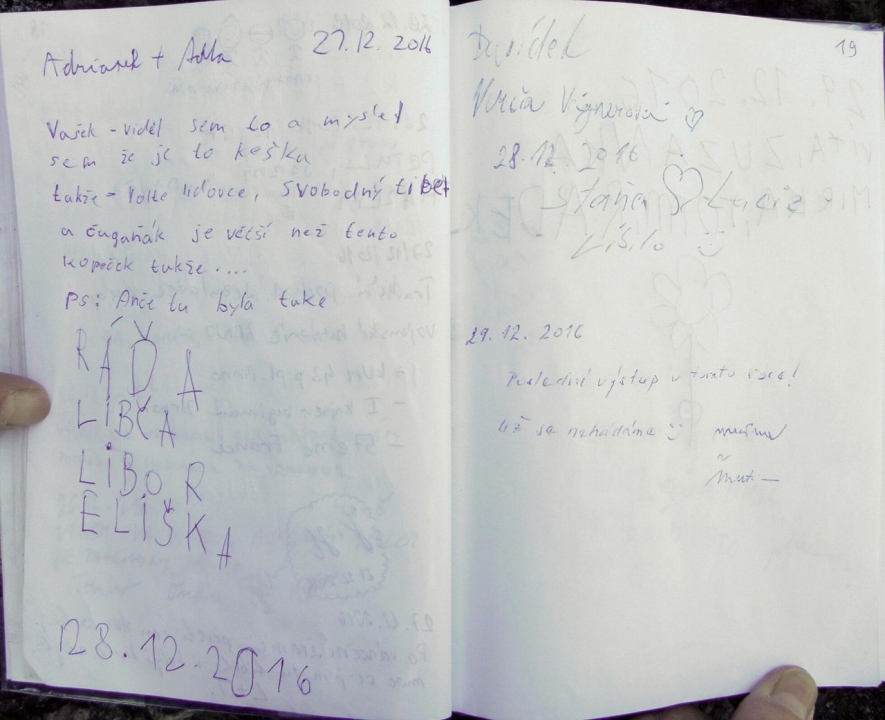 Adriánek + Adéla 27.12. 2016
Vašek - viděl sem to a myslel
sem že je to keška
takže - Volte lidovce, svobodný tibet
a čugaňák je větší než tento
kopeček takže ....
PS: Anče tu byla take
RÁĎA
LÍBČA
LIBOR
ELIŠKA
28.12.2016
19
Verča Vignerová ♡
28.12. 2016
Staňa ♡ Lucie
29.12. 2016
Poslední výstup v tomto roce!
Už se nehádáme